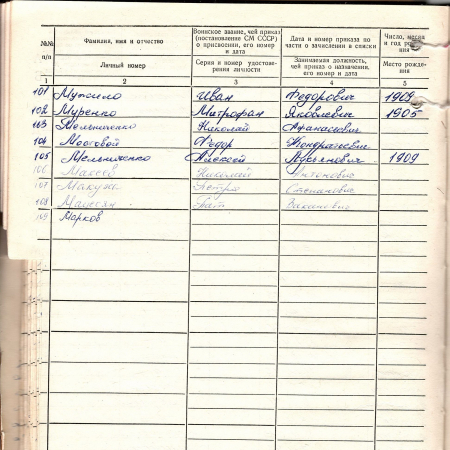 №№ п/п
Фамилия, имя и отчество
Личный номер
Воинское звание, чей приказ
(постановление СМ СССР)
о присвоении, его номер
и дата
Серия и номер удостове-
рения личности
Дата и номер приказа по
части о зачислении в списки
Занимаемая должность,
чей приказ о назначении,
его номер и дата
Число, месяц
и год рождения
Место рожде-
ния
1 2 3 4 5
101 Иван Федорович 1909
102 Муренко Митрофан Яковлевич 1905
103 Мельниченко Николай Афанасьевич
104 Мозговой Федор Кондратьевич
105 Мельниченко Алексей Лукьянович 1909
106 Макеев Николай Антонович
107 Петро Степанович
108
109 Марков